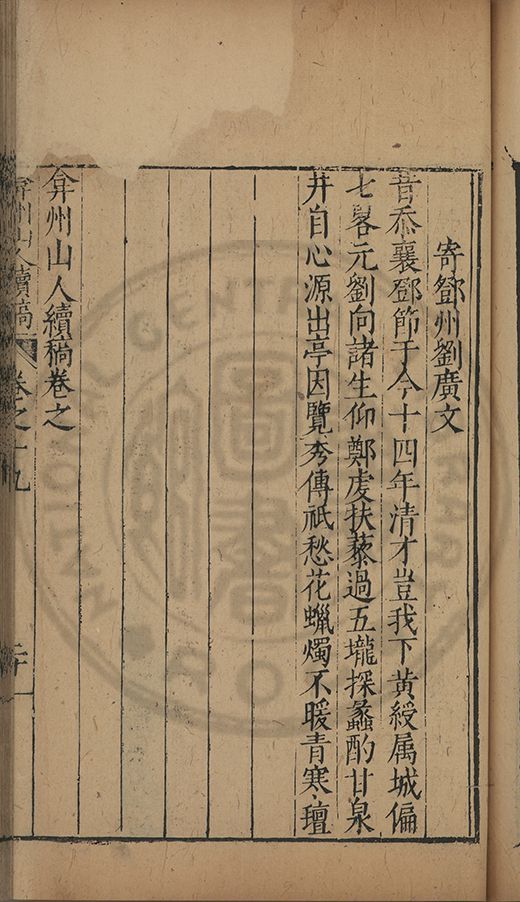 寄鄧州劉廣文
昔忝襄鄧節于今十四年清才豈我下黃綬属城偏
七畧元劉向諸生仰鄭虔扶藜過五壠探蠡酌甘泉
井自心源出亭因覽秀傳祇愁花蠟燭不暖青寒壇
弇州山人續稿卷之
弇州山人續稿 卷之十九